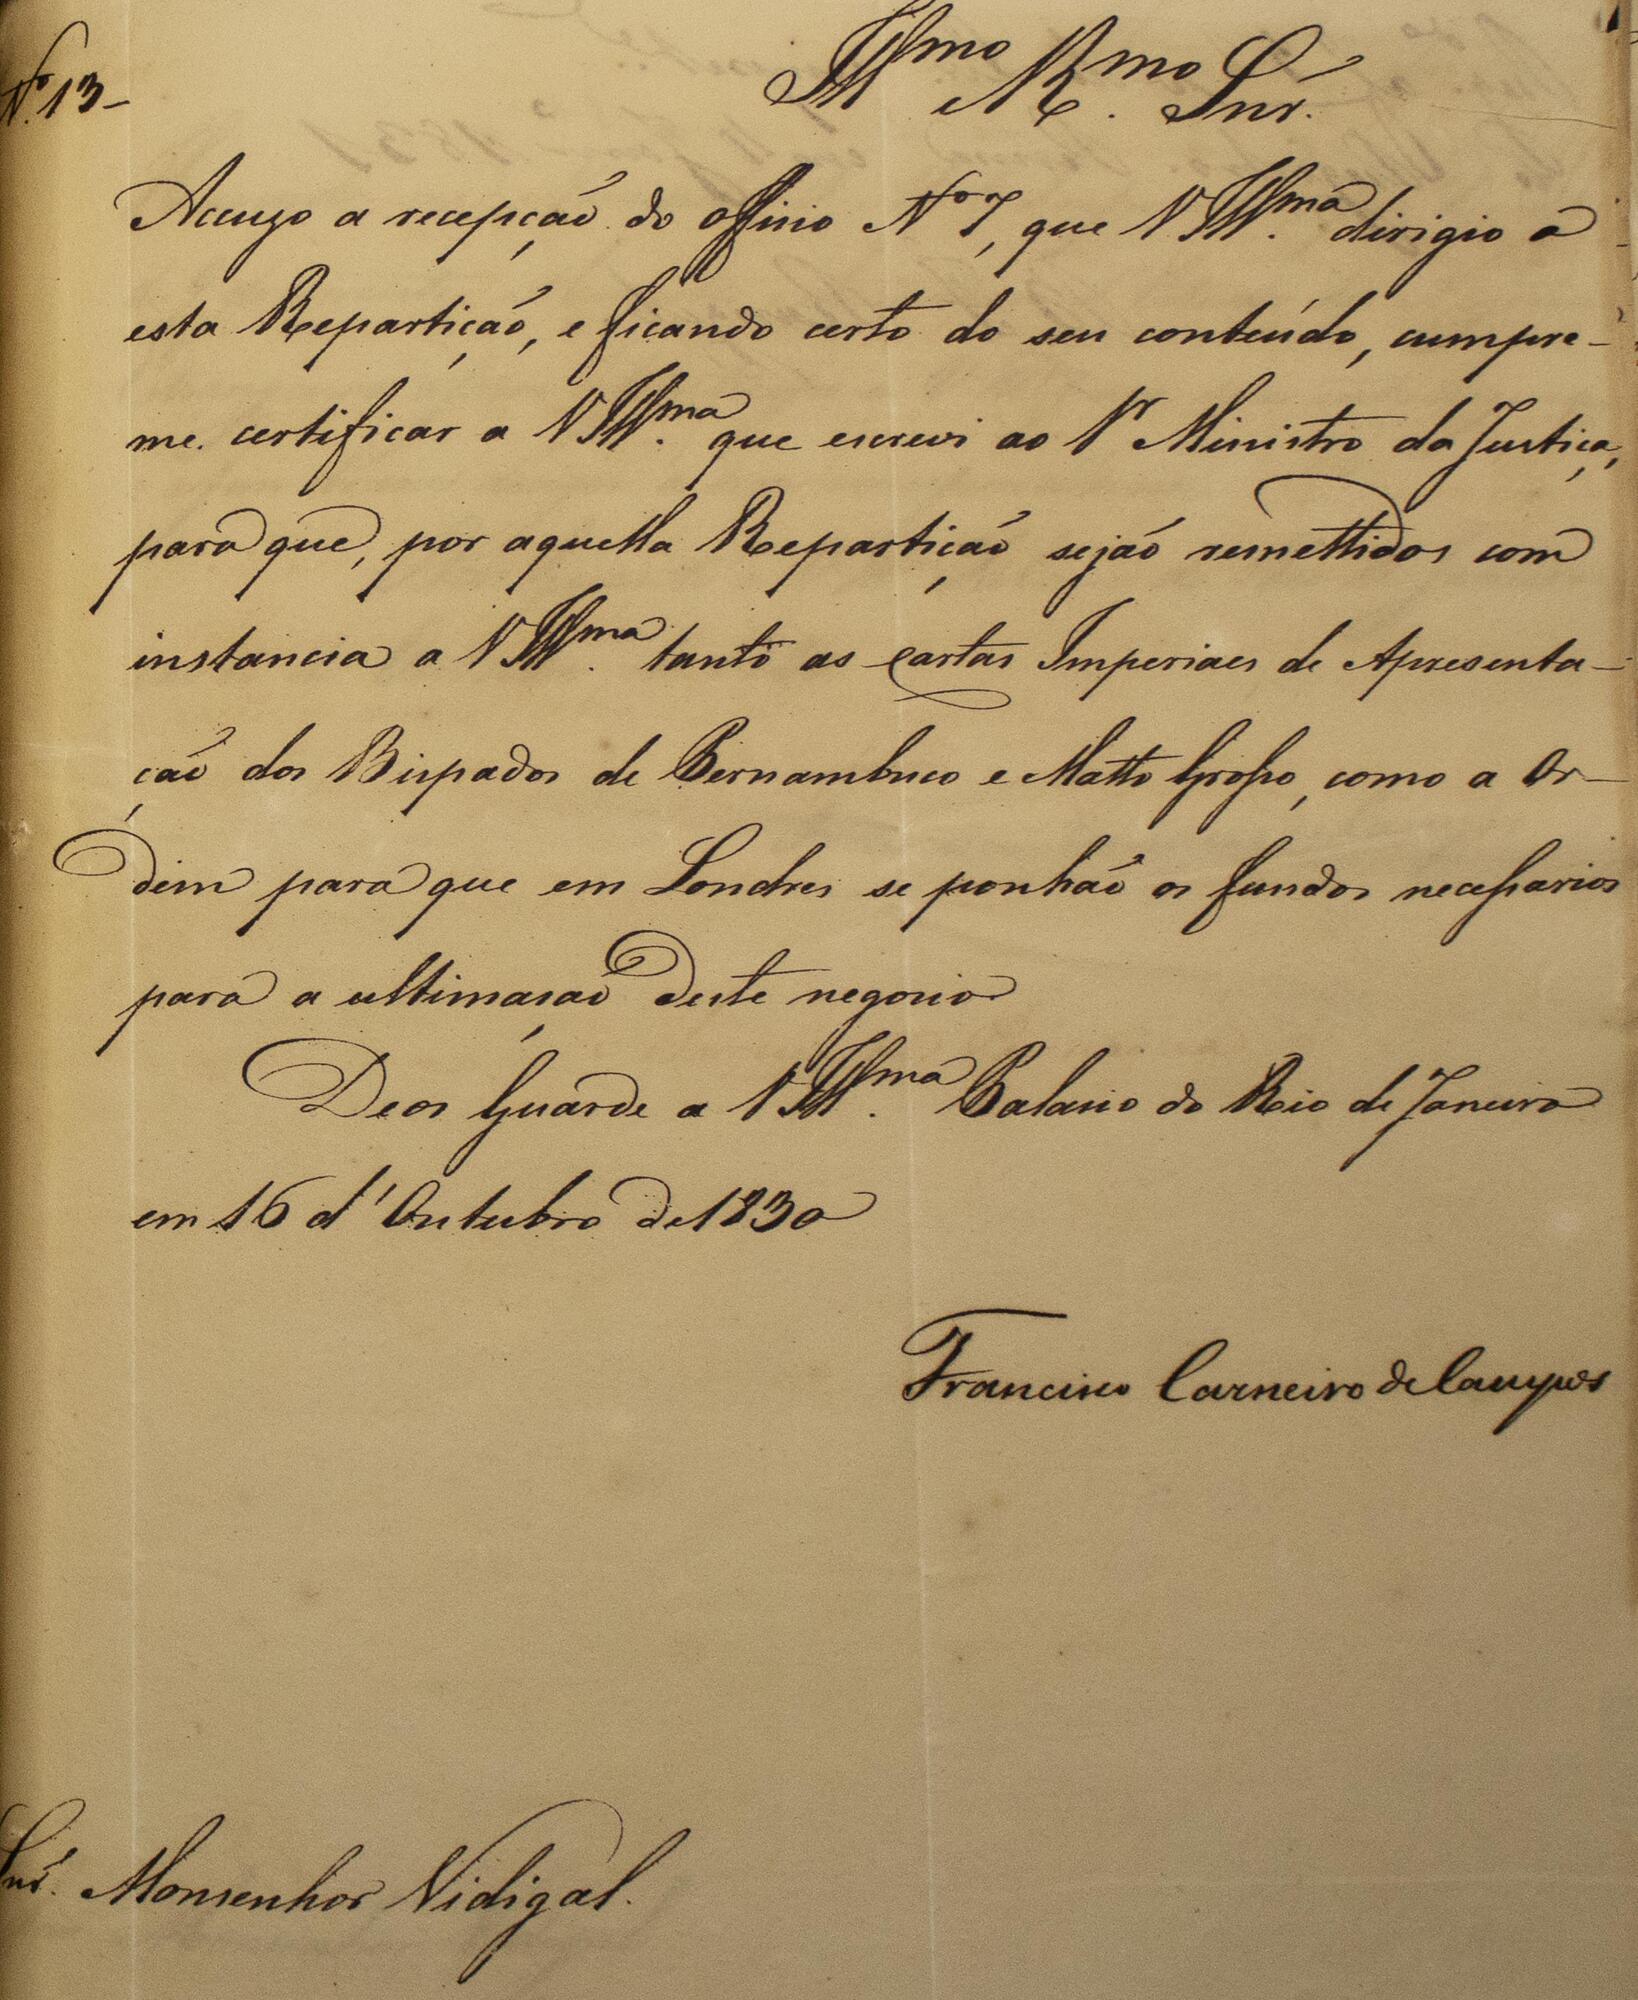 Nº 13-
Illmo Rmo Snr.
Accuzo a recepção do officio Nº 7, que V Illma. dirigio a
esta Repartição, e ficando certo do seu conteúdo, cumpre-
me certificar a V Illma. que escrevi ao Sr Ministro da Justiça,
para que, por aquella Repartição sejão remettidos com
instancia a V Illma. tanto as Cartas Imperiaes de Apresenta-
ção dos Bispados de Pernambuco e Matto Grosso, como a Or-
dem para que em Londres se ponhão os fundos necessarios
para a ultimação deste negocio
Deos Guarde a V Illma. Palacio do Rio de Janeiro
em 16 d'Outubro de 1830
Francisco Carneiro de Campos
Snr. Monsenhor Vidigal.